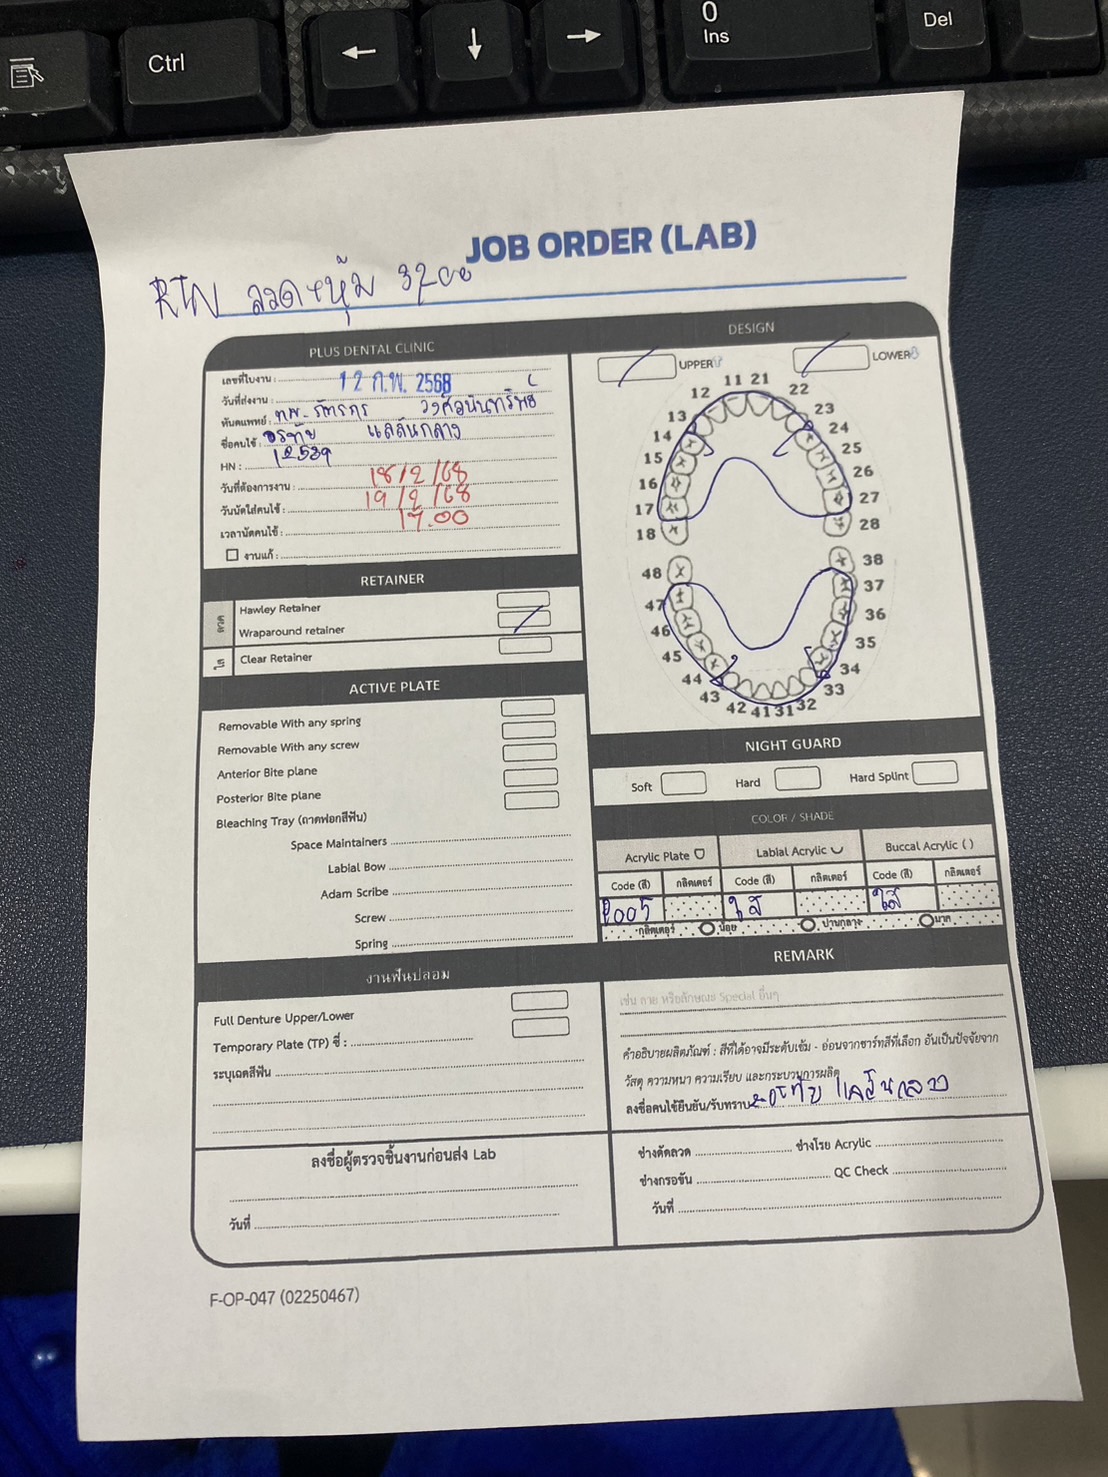 Ctrl
←
↓
→
0
Ins
Del
JOB ORDER (LAB)
RTN ลวด+หุ้ม 3700
PLUS DENTAL CLINIC
เลขที่ใบงาน :
วันที่ส่งงาน : 12 ก.พ. 2568
ทันตแพทย์ : ทพ.
ชื่อคนไข้ : อรทัย แลลันกลาง
HN : 12539
วันที่ต้องการงาน : 18/2/68
วันนัดใส่คนไข้ : 19/2/68
เวลานัดคนไข้ : 17.00
งานแก้ :
RETAINER
ลวด
Hawley Retainer
Wraparound retainer
ใส
Clear Retainer
ACTIVE PLATE
Removable With any spring
Removable With any screw
Anterior Bite plane
Posterior Bite plane
Bleaching Tray (ถาดฟอกสีฟัน)
Space Maintainers
Labial Bow
Adam Scribe
Screw
Spring
งานฟันปลอม
Full Denture Upper/Lower
Temporary Plate (TP) ซี่ :
ระบุเฉดสีฟัน
ลงชื่อผู้ตรวจชิ้นงานก่อนส่ง Lab
วันที่
DESIGN
UPPER
LOWER
11 21
12 22
13 23
14 24
15 25
16 26
17 27
18 28
48 38
47 37
46 36
45 35
44 34
43 33
42 41 31 32
NIGHT GUARD
Soft
Hard
Hard Splint
COLOR / SHADE
Acrylic Plate
Labial Acrylic
Buccal Acrylic ( )
Code (สี) กลิตเตอร์ Code (สี) กลิตเตอร์ Code (สี) กลิตเตอร์
P005 ใส ใส
กลิตเตอร์ น้อย ปานกลาง มาก
REMARK
เช่น กาย หรือลักษณะ Special อื่นๆ
คำอธิบายผลิตภัณฑ์ : สีที่ได้อาจมีระดับเข้ม - อ่อนจากชาร์ทสีที่เลือก อันเป็นปัจจัยจาก
วัสดุ ความหนา ความเรียบ และกระบวนการผลิต
ลงชื่อคนไข้ยืนยัน/รับทราบ อรทัย แลลันกลาง
ช่างดัดลวด ช่างโรย Acrylic
ช่างกรอขัน QC Check
วันที่
F-OP-047 (02250467)